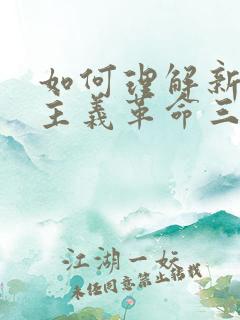 如何理解新
主义革命三
江湖一妖
未经同意禁止转载